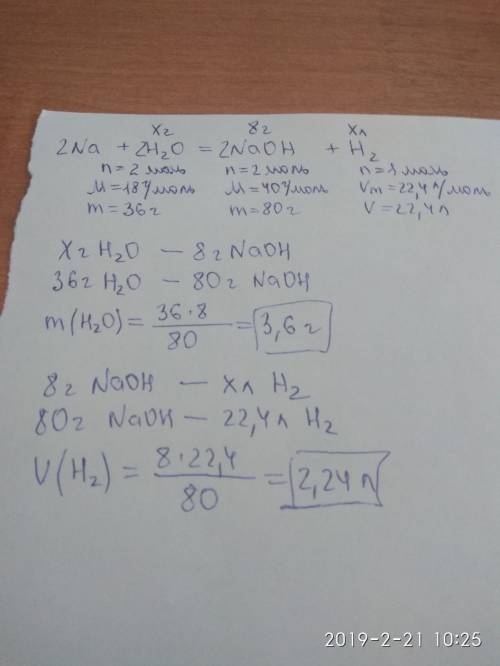 хг 8г хл
2Na + 2H₂O = 2NaOH + H₂
n=2 моль n=2 моль n=1 моль
M=18г/моль M=40г/моль Vm=22,4л/моль
m=36г m=80г V=22,4л
хг H₂O — 8г NaOH
36г H₂O — 80г NaOH
m(H₂O) = 36·8/80 = 3,6г
8г NaOH — хл H₂
80г NaOH — 22,4л H₂
V(H₂) = 8·22,4/80 = 2,24л
2019-2-21 10:25